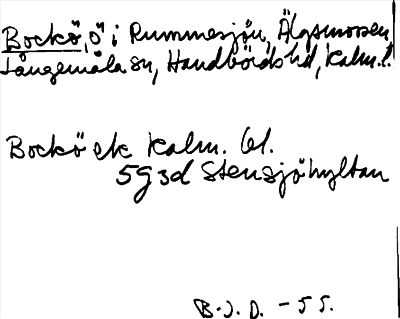 Bockö, ö i Rummesjön, Älgsmossen
Långemåla sn, Handbörds hd, Kalm. l.
Bockö ek Kalm. bl.
5g3d Stensjöhyltan
B.J.D. - 55.